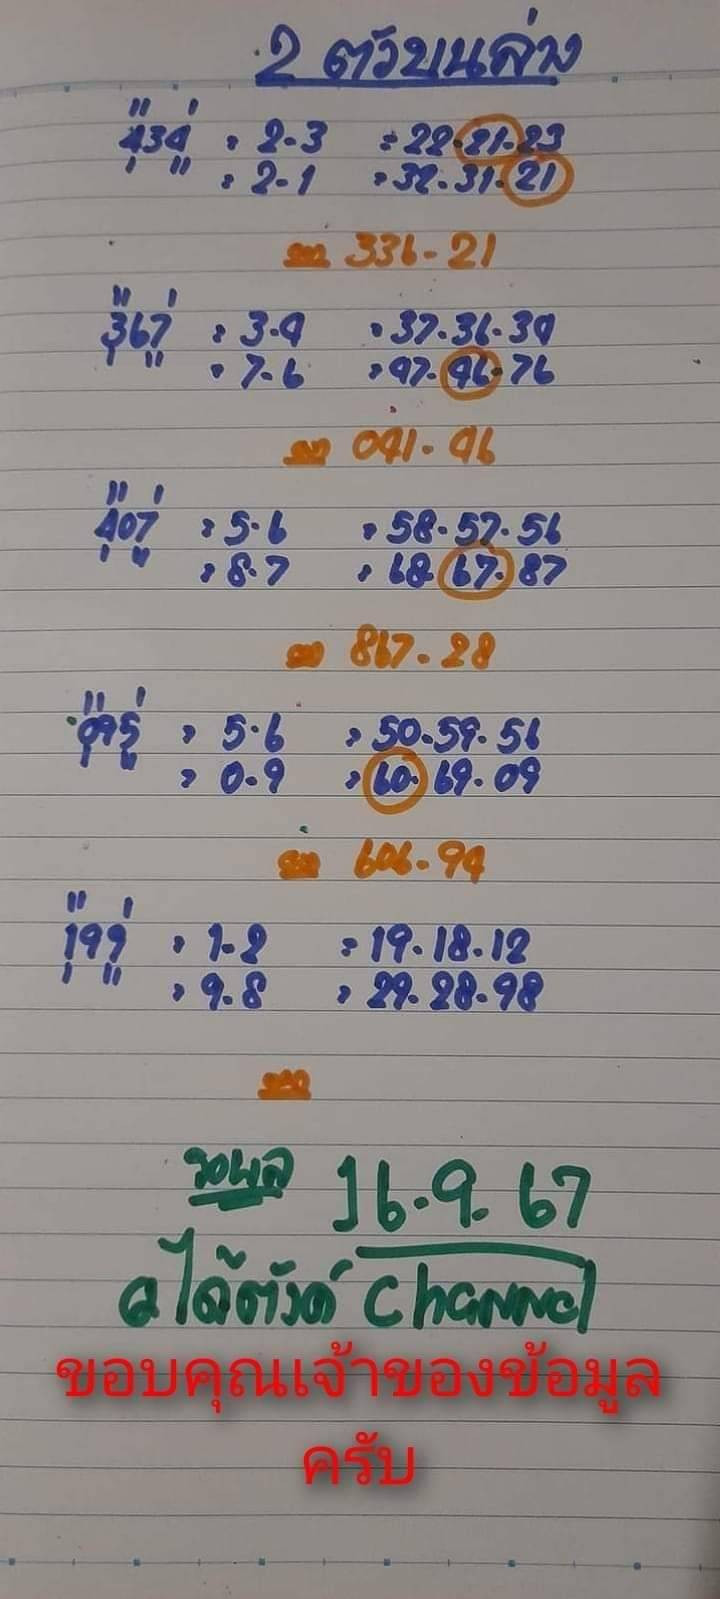 2 ตัวบนล่าง
434 = 2-3 = 22-21-23
= 2-1 = 32-31-21
336-21
367 = 3-4 = 37-36-34
= 7-6 = 47-46-76
041-46
407 = 5-6 = 58-57-56
= 8-7 = 68-67-87
867-28
095 = 5-6 = 50-59-56
= 0-9 = 60-69-09
606-94
199 = 1-2 = 19-18-12
= 9-8 = 29-28-98
16-9-67
Channel
ขอบคุณเจ้าของข้อมูล
ครับ